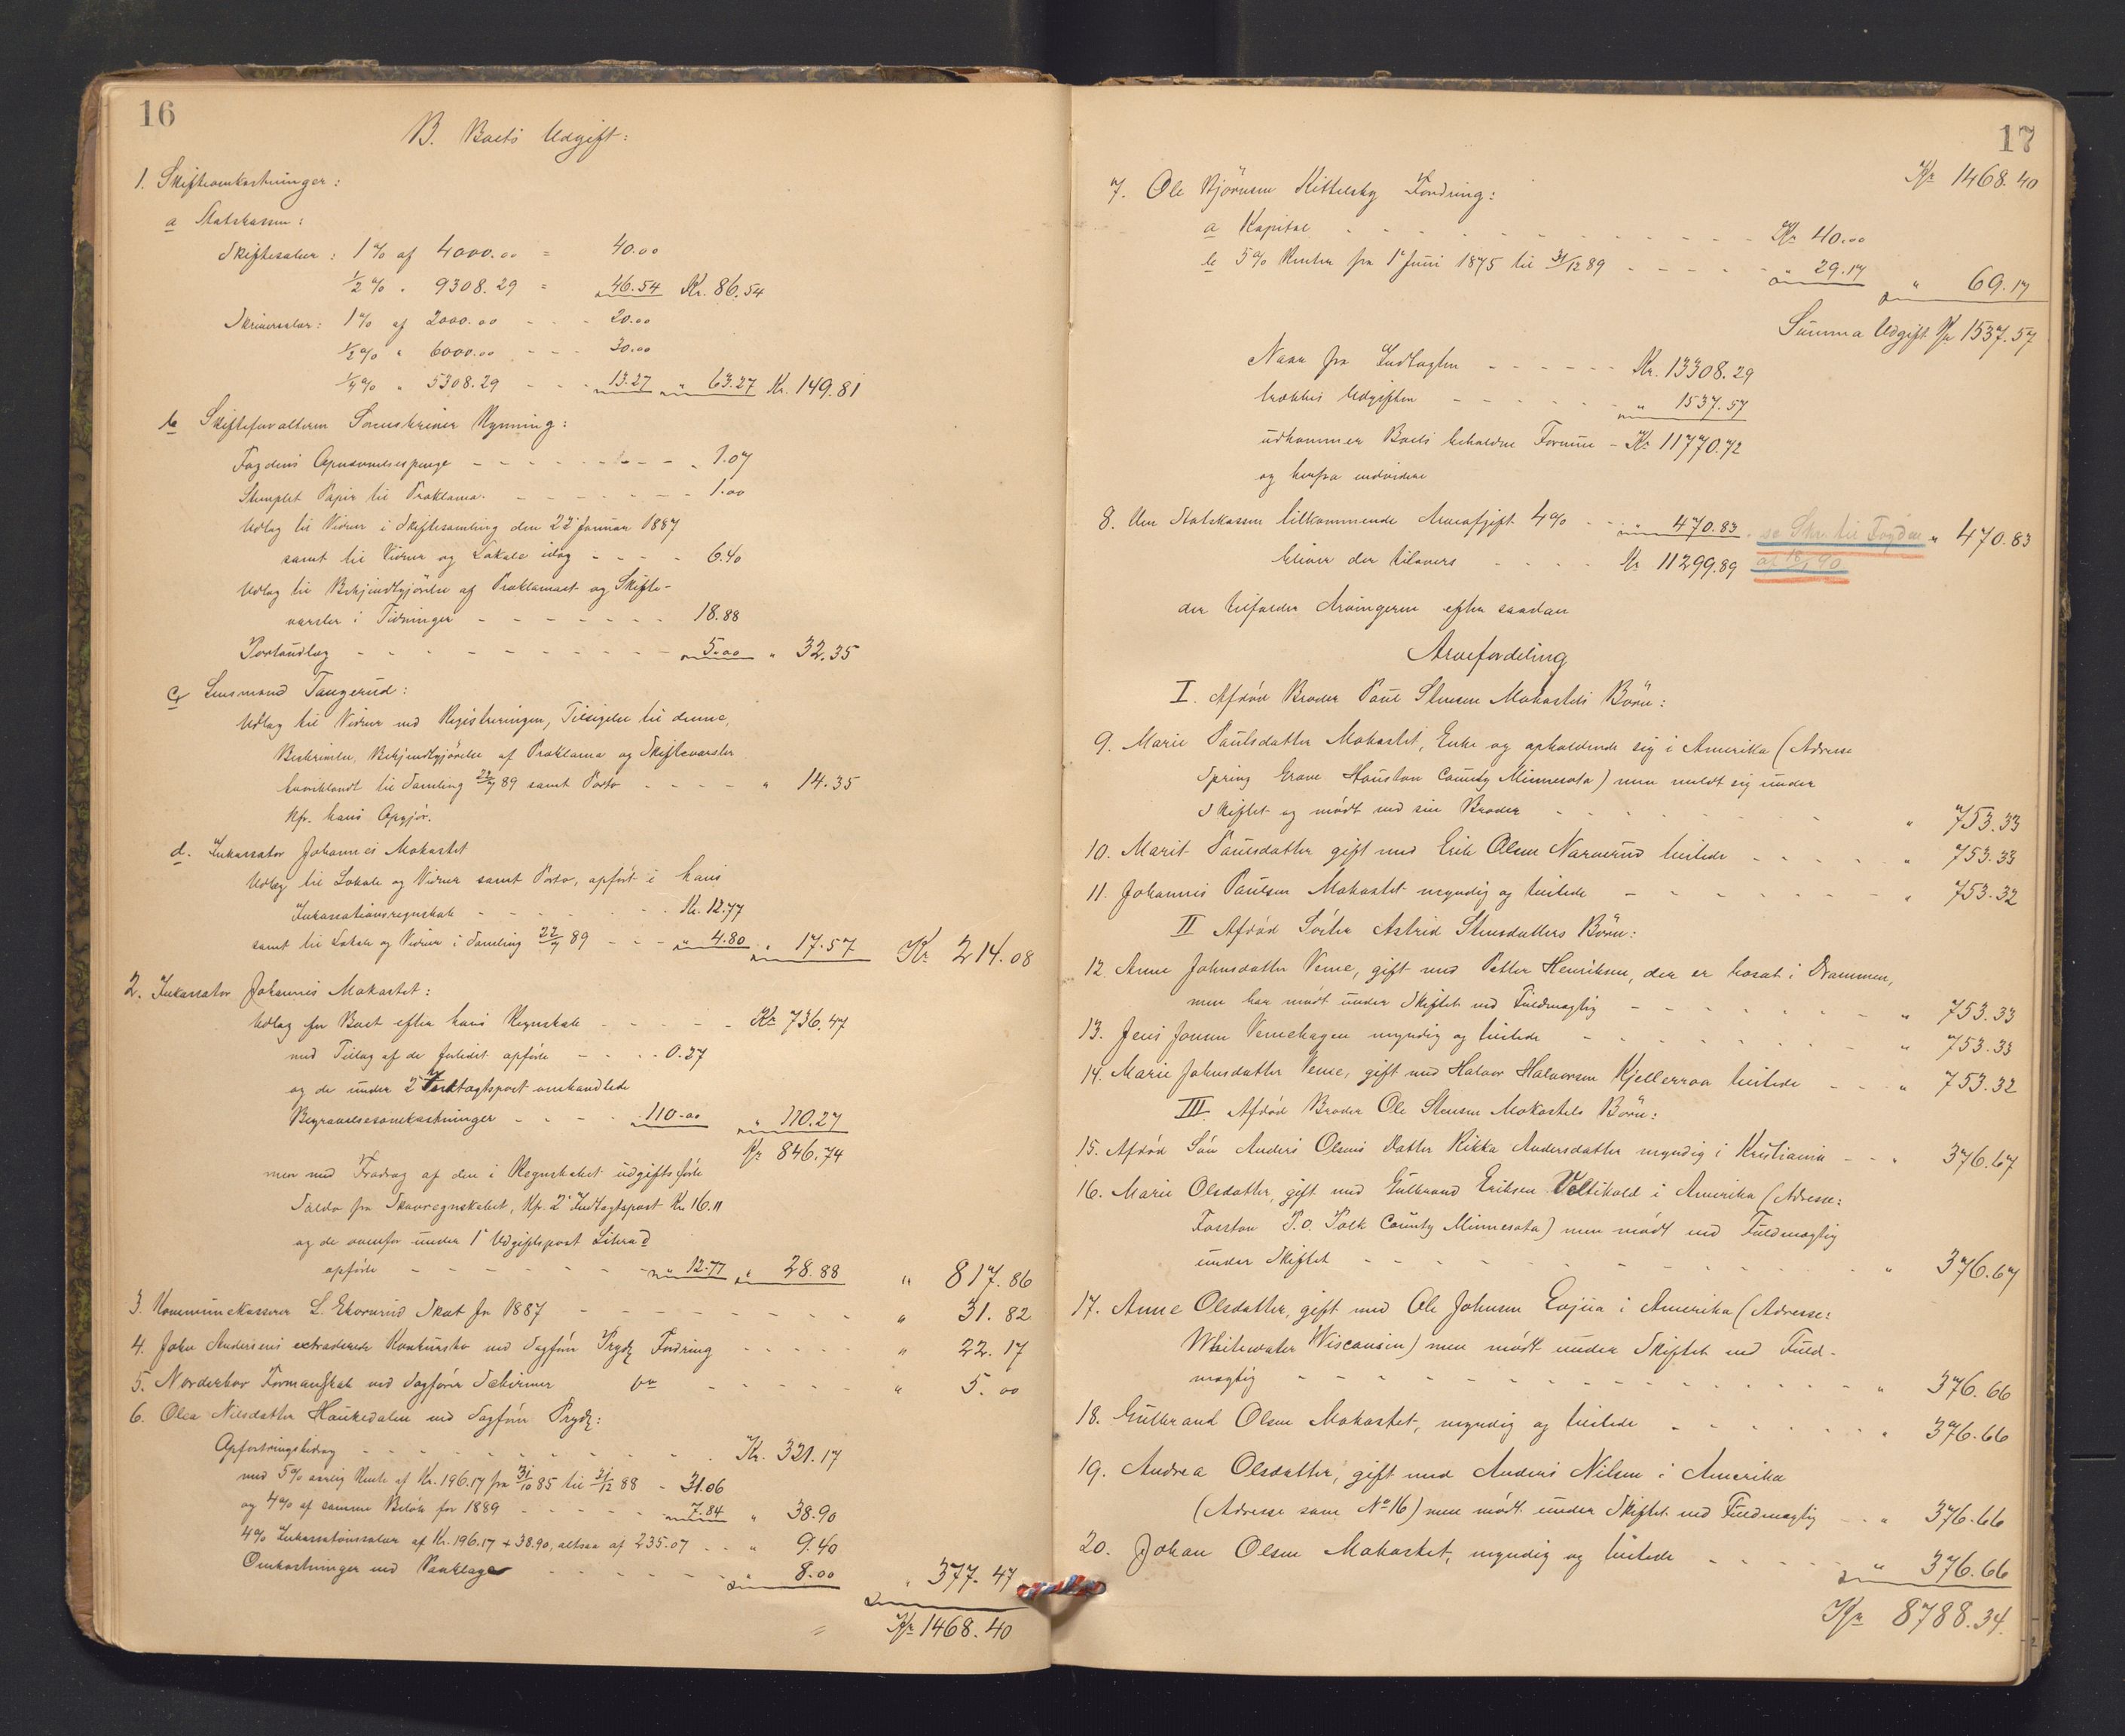 16
B. Boets Udgift:
1. Skifteomkostninger:
a Statskassen:
Skiftesalær: 1% af 4000.00 = 40.00
½% " 9308.29 = 46.54 Kr. 86.54
Skriversalær: 1% af 2000.00 - - - 20.00
½% " 6000.00 - - - 30.00
¼% " 5308.29 - - - 13.27 " 63.27 Kr. 149.81
b Skifteforvalteren Sorenskriver Rynning:
Fogdens - - - - - - - - " 1.07
Stemplet Papir til Proklama. - - - - - - - 1.00
Udlæg til Vidner i Skiftesamling den 22' Januar 1887
samt til Vidner og Lokale idag - - - - 6.40
Udlæg til Bekjendtgjørelse af Proklamaet og Skifte-
varsler i Tidninger - - - - - - - 18.88
Portoudlæg - - - - - - - - - - - 5.00 " 32.35
c Lensmand Tangerud:
Udlæg til Vidner ved Registreringen, Tilsigelse til denne,
Beskrivelse, Bekjendtgjørelse af Proklama og Skiftevarsler
til Samling 22/7 89 samt Porto - - - - " 14.35
Kfr. hans Opgjør.
d. Inkassator Johannes Mokastet
Udlæg til Lokale og Vidner samt Porto, opført i hans
Inkassationsregnskab - - - - - - Kr. 12.77
samt til Lokale og Vidner i Samling 22/7 89 - - - " 4.80 " 17.57 Kr. 214.08
2. Inkassator Johannes Mokastet:
Udlæg for Boet efter hans Regnskab - - - - - Kr. 736.47
med Tillæg af de forlidet opførte - - - - 0.27
og de under 2' Indtægtspost omhandlede
Begravelsesomkostninger - - - - 110.00 " 110.27
Kr. 846.74
men med Fradrag af den i Regnskabet udgiftsførte
Saldo fra Skovregnskabet, Kfr. 2' Indtægtspost Kr. 16.11
og de ovenfor under 1' Udgiftspost Litra d
opførte - - - - - - - - " 12.77 " 28.88 " 817.86
3. Kommunekasserer L. Ekornrud Skat for 1887 - - - - - - - - - " 31.82
4. John Andersens extraderede Konkursbo ved Sagfører Prydz Fordring - - - - - " 22.17
5. Norderhov Formandskab ved Sagfører Schirmer do - - - - - " 5.00
6. Olea Nilsdatter Haukedalen ved Sagfører Prydz:
Opfostringsbidrag - - - - - - - - - - Kr. 321.17
med 5% aarlig Rente af Kr. 196.17 fra 31/10 85 til 31/12 88 - 31.06
og 4% af samme Beløb for 1889 - - - - - - 7.84 " 38.90
4% Inkassationssalær af Kr. 196.17 + 38.90, altsaa af 235.07 - - " 9.40
Omkostninger ved Paaklage - - - - - - " 8.00 " 377.47
Kr. 1468.40
17
Kr. 1468.40
7. Ole Bjørnsen Kittelsby Fordring:
a Kapital - - - - - - - - - - - - - Kr. 40.00
b 5% Renter fra 1' Juni 1875 til 31/12 89 - - - - - " 29.17 " 69.17
Summa Udgift Kr. 1537.57
Naar fra Indtægten - - - - - - Kr. 13308.29
trækkes Udgiften - - - - - - " 1537.57
udkommer Boets beholdne Formue - Kr. 11770.72
og herfra endvidere
8. Den Statskassen tilkommende Arveafgift 4% - - " 470.83 se Skr. til Fogden " 470.83
bliver der tilovers - - - - - Kr. 11299.89 af 18/1 90
der tilfalder Arvingerne efter saadan
Arvefordeling
I. Afdød Broder Paul Stensen Mokastets Børn:
9. Marie Paulsdatter Mokastet, Enke og opholdende sig i Amerika (Adresse
Spring Grove Houston County Minnesota) men meldt sig under
Skiftet og mødt ved sin Broder - - - - - - - " 753.33
10. Marit Paulsdatter gift med Erik Olsen Narverud tilstede - - - - - " 753.33
11. Johannes Paulsen Mokastet myndig og tilstede - - - - - - - " 753.32
II Afdød Søster Astrid Stensdatters Børn:
12. Anne Johnsdatter Veme, gift med Petter Henriksen, der er bosat i Drammen,
men har mødt under Skiftet ved Fuldmægtig - - - - - - - " 753.33
13. Jens Jonsen Vemehagen myndig og tilstede - - - - - - - - " 753.33
14. Marie Johnsdatter Veme, gift med Halvor Halvorsen Kjellerroa tilstede - - - " 753.32
III Afdød Broder Ole Stensen Mokastets Børn:
15. Afdød Søn Anders Olsens Datter Rikka Andersdatter myndig i Kristiania - - " 376.67
16. Marie Olsdatter, gift med Gulbrand Eriksen Veltikold i Amerika (Adresse:
Fosston P.O. Polk County Minnesota) men mødt ved Fuldmægtig
under Skiftet - - - - - - - - - - - - - " 376.67
17. Anne Olsdatter, gift med Ole Johnsen Evjua i Amerika (Adresse:
Whitewater Wisconsin) men mødt under Skiftet ved Fuld-
mægtig - - - - - - - - - - - - - - " 376.66
18. Gulbrand Olsen Mokastet, myndig og tilstede - - - - - - - " 376.66
19. Andrea Olsdatter, gift med Anders Nilsen i Amerika
(Adresse som No 16) men mødt under Skiftet ved Fuldmægtig - - " 376.66
20. Johan Olsen Mokastet, myndig og tilstede - - - - - " 376.66
Kr. 8788.34.